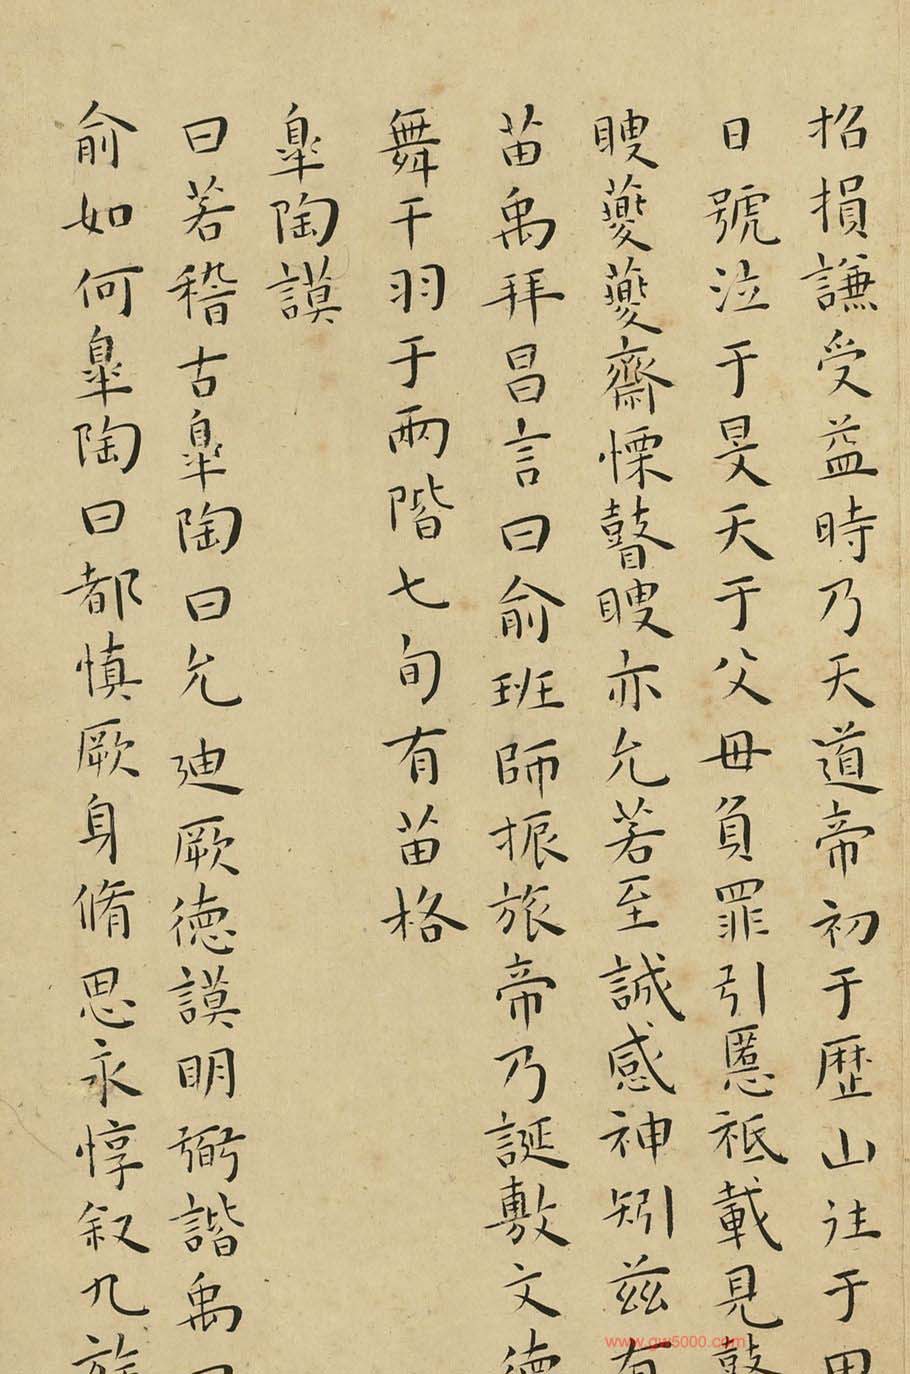 招損謙受益時乃天道帝初于歷山往于田
日號泣于旻天于父毋負罪引慝祗載見瞽
瞍夔夔齋慄瞽瞍亦允若至諴感神矧兹有
苗禹拜昌言曰俞班師振旅帝乃誕敷文德
舞干羽于兩階七旬有苗格
臯陶謨
曰若稽古臯陶曰允迪厥德謨明弼諧禹曰
俞如何臯陶曰都慎厥身脩思永惇叙九族
www.gw5000.com